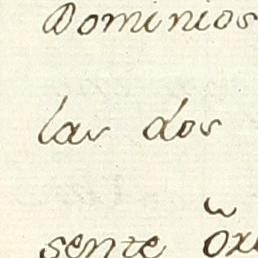 Dominios
las dos
sente